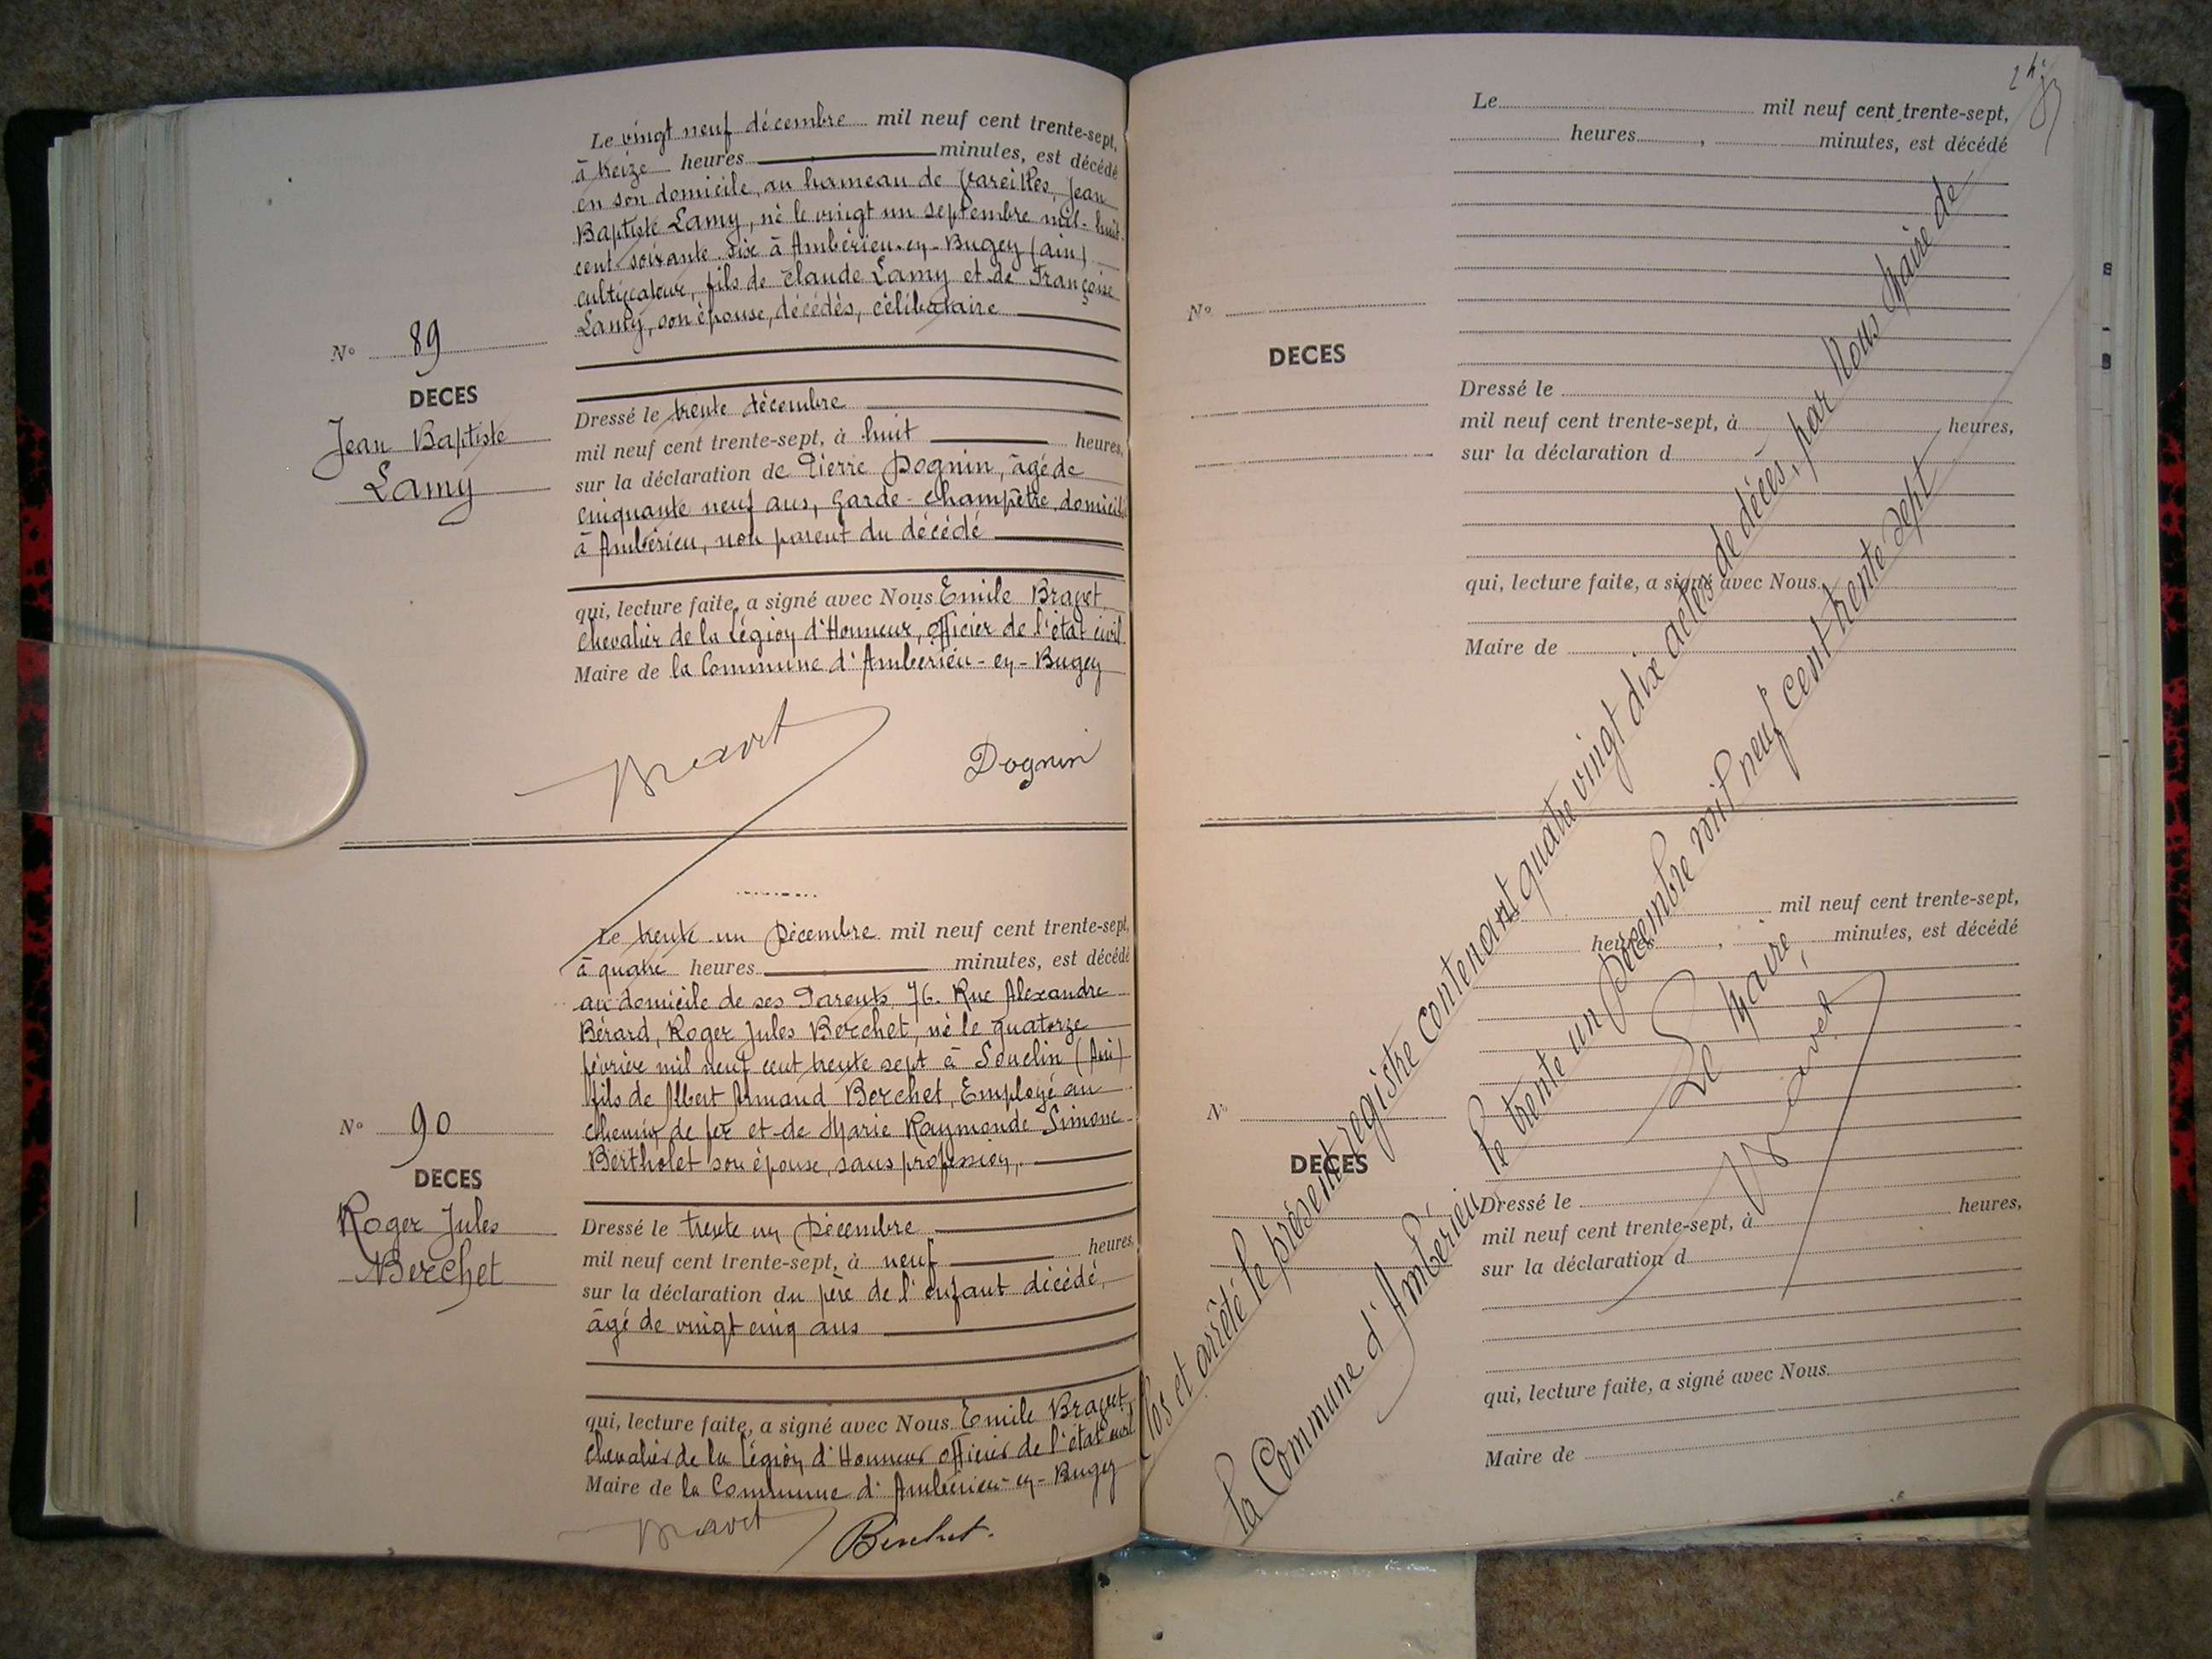 Le vingt neuf décembre mil neuf cent trente-sept,
à treize heures minutes, est décédé
en son domicile, au hameau de Vareilles, Jean
Baptiste Lamy, né le vingt un septembre mil-huit
cent soixante six à Ambérieu-en-Bugey (Ain)
cultivateur, fils de Claude Lamy et de Françoise
Lamy, son épouse, décédés, célibataire
N° 89
DECES
Jean Baptiste
Lamy
Dressé le trente décembre
mil neuf cent trente-sept, à huit heures,
sur la déclaration de Pierre Dognin, âgé de
cinquante neuf ans, garde-champêtre, domicilié
à Ambérieu, non parent du décédé
qui, lecture faite, a signé avec Nous Emile Bravet,
Chevalier de la Légion d'Honneur, officier de l'état civil
Maire de la Commune d'Ambérieu-en-Bugey
Bravet
Dognin
Le trente un Décembre mil neuf cent trente-sept,
à quatre heures minutes, est décédé
au domicile de ses Parents 76. Rue Alexandre
Bérard, Roger Jules Berchet, né le quatorze
février mil neuf cent trente sept à Souclin (Ain)
fils de Albert Armand Berchet, Employé au
chemin de fer et de Marie Raymonde Simone
Bertholet son épouse, sans profession,
N° 90
DECES
Roger Jules
Berchet
Dressé le trente un Décembre
mil neuf cent trente-sept, à neuf heures,
sur la déclaration du père de l'enfant décédé,
âgé de vingt cinq ans
qui, lecture faite, a signé avec Nous Emile Bravet,
Chevalier de la Légion d'Honneur officier de l'état civil
Maire de la Commune d'Ambérieu-en-Bugey
Bravet
Berchet.
Le mil neuf cent trente-sept,
heures, minutes, est décédé
N°
DECES
Dressé le
mil neuf cent trente-sept, à heures,
sur la déclaration d
qui, lecture faite, a signé avec Nous
Maire de
mil neuf cent trente-sept,
heures, minutes, est décédé
N°
DECES
Dressé le
mil neuf cent trente-sept, à heures,
sur la déclaration d
qui, lecture faite, a signé avec Nous
Maire de
Clos et arrêté le présent registre contenant quatre vingt dix actes de décès, par Nous Maire de
la Commune d'Ambérieu, le trente un Décembre mil neuf cent trente sept
Le Maire,
Bravet